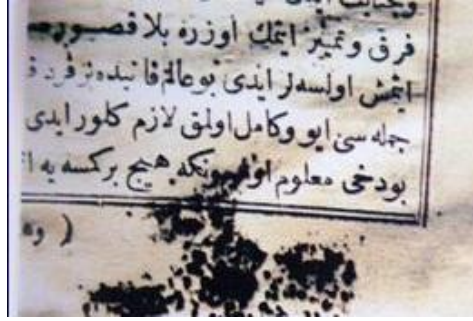 فرق و تمييز ايتمك اوزره بلا قصور
ايتمش اولسه لر ايدى بو عالم فانيده بر فرد
جمله سى ايو و كامل اولمق لازم كلور ايدى
بو دخى معلوم اوله كه هيچ بر كمسه يه
( وه